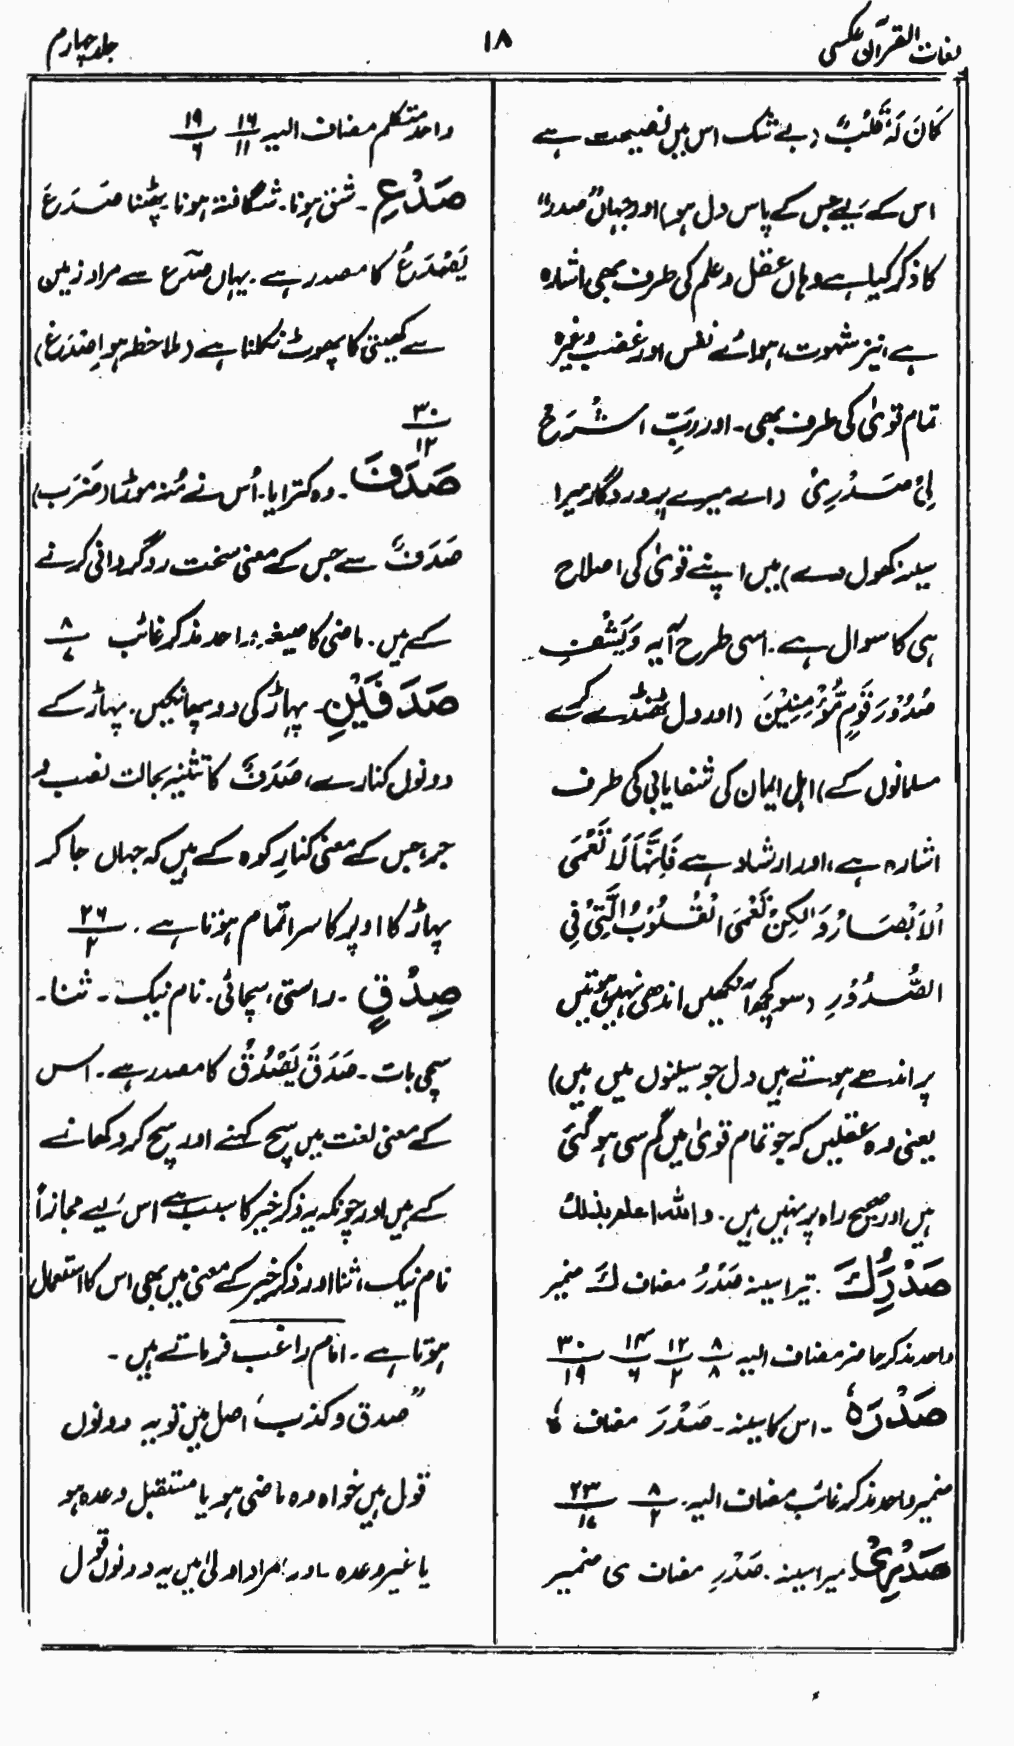 لغات القرآن عکسی
۱۸
جلد چہارم
کَانَ لَہٗ قَلْبٌ (بے شک اس میں نصیحت ہے
اس کے لیے جس کے پاس دل ہو) اور جہاں "صدر"
کا ذکر کیا ہے وہاں عقل و علم کی طرف بھی اشارہ
ہے، نیز شہوت، ہوائے نفس اور غضب وغیرہ
تمام قویٰ کی طرف بھی۔ اور رَبِّ اشْرَحْ
لِیْ صَدْرِیْ (اے میرے پروردگار میرا
سینہ کھول دے) میں اپنے قویٰ کی اصلاح
ہی کا سوال ہے۔ اسی طرح آیہ وَیَشْفِ
صُدُوْرَ قَوْمٍ مُّؤْمِنِیْنَ (اور دل ٹھنڈے کرے
مسلمانوں کے) اہل ایمان کی شفایابی کی طرف
اشارہ ہے، اور ارشاد ہے فَاِنَّہَا لَا تَعْمَی
الْاَبْصَارُ وَلٰکِنْ تَعْمَی الْقُلُوْبُ الَّتِیْ فِی
الصُّدُوْرِ (سو کچھ آنکھیں اندھی نہیں ہوتیں
پر اندھے ہوتے ہیں دل جو سینوں میں ہیں)
یعنی وہ عقلیں کہ جو تمام قویٰ میں گم سی ہو گئی
ہیں اور صحیح راہ پر نہیں ہیں۔ واللہ اعلم بذلک
صَدْرِکَ۔ تیرا سینہ صَدْرُ مضاف کَ ضمیر
واحد مذکر حاضر مضاف الیہ ۸/۸ ۱۲/۲ ۱۴/۶ ۳۰/۱۹
صَدْرَہٗ۔ اس کا سینہ۔ صَدْرَ مضاف ہٗ
ضمیر واحد مذکر غائب مضاف الیہ۔ ۸/۲ ۲۳/۱۷
صَدْرِیْ میرا سینہ۔ صَدْرِ مضاف ی ضمیر
واحد متکلم مضاف الیہ ۱۶/۱۱ ۱۹/۶
صَدْعِ۔ شق ہونا۔ شگافتہ ہونا۔ پھٹنا صَدَعَ
یَصْدَعُ کا مصدر ہے۔ یہاں صدع سے مراد زمین
سے کھیتی کا پھوٹ نکلنا ہے (ملاحظہ ہو اِصْدَعْ)
۳۰/۱۲
صَدَفَ۔ وہ کترایا۔ اُس نے مُنہ موڑا (ضَرَبَ)
صَدَفٌ سے جس کے معنی سخت روگردانی کرنے
کے ہیں۔ ماضی کا صیغہ واحد مذکر غائب ۸/۷
صَدَفَیْنِ۔ پہاڑ کی دو پھانکیں۔ پہاڑ کے
دونوں کنارے، صَدَفٌ کا تثنیہ بحالت نصب و
جر، جس کے معنی کنارِ کوہ کے ہیں کہ جہاں جا کر
پہاڑ کا اوپر کا سرا تمام ہوتا ہے۔ ۲۶/۲
صِدْقٍ۔ راستی، سچائی۔ نام نیک۔ ثنا۔
سچی بات۔ صَدَقَ یَصْدُقُ کا مصدر ہے۔ اس
کے معنی لغت میں سچ کہنے اور سچ کر دکھانے
کے ہیں اور چونکہ یہ ذکر خیر کا سبب ہے اس لیے مجازاً
نام نیک، ثنا اور ذکر خیر کے معنی میں بھی اس کا استعمال
ہوتا ہے۔ امام راغب فرماتے ہیں۔
"صدق و کذب، اصل میں تو یہ دونوں
قول میں خواہ وہ ماضی ہو یا مستقبل وعدہ ہو
یا غیر وعدہ۔ اور مراد اولیٰ میں یہ دونوں قول